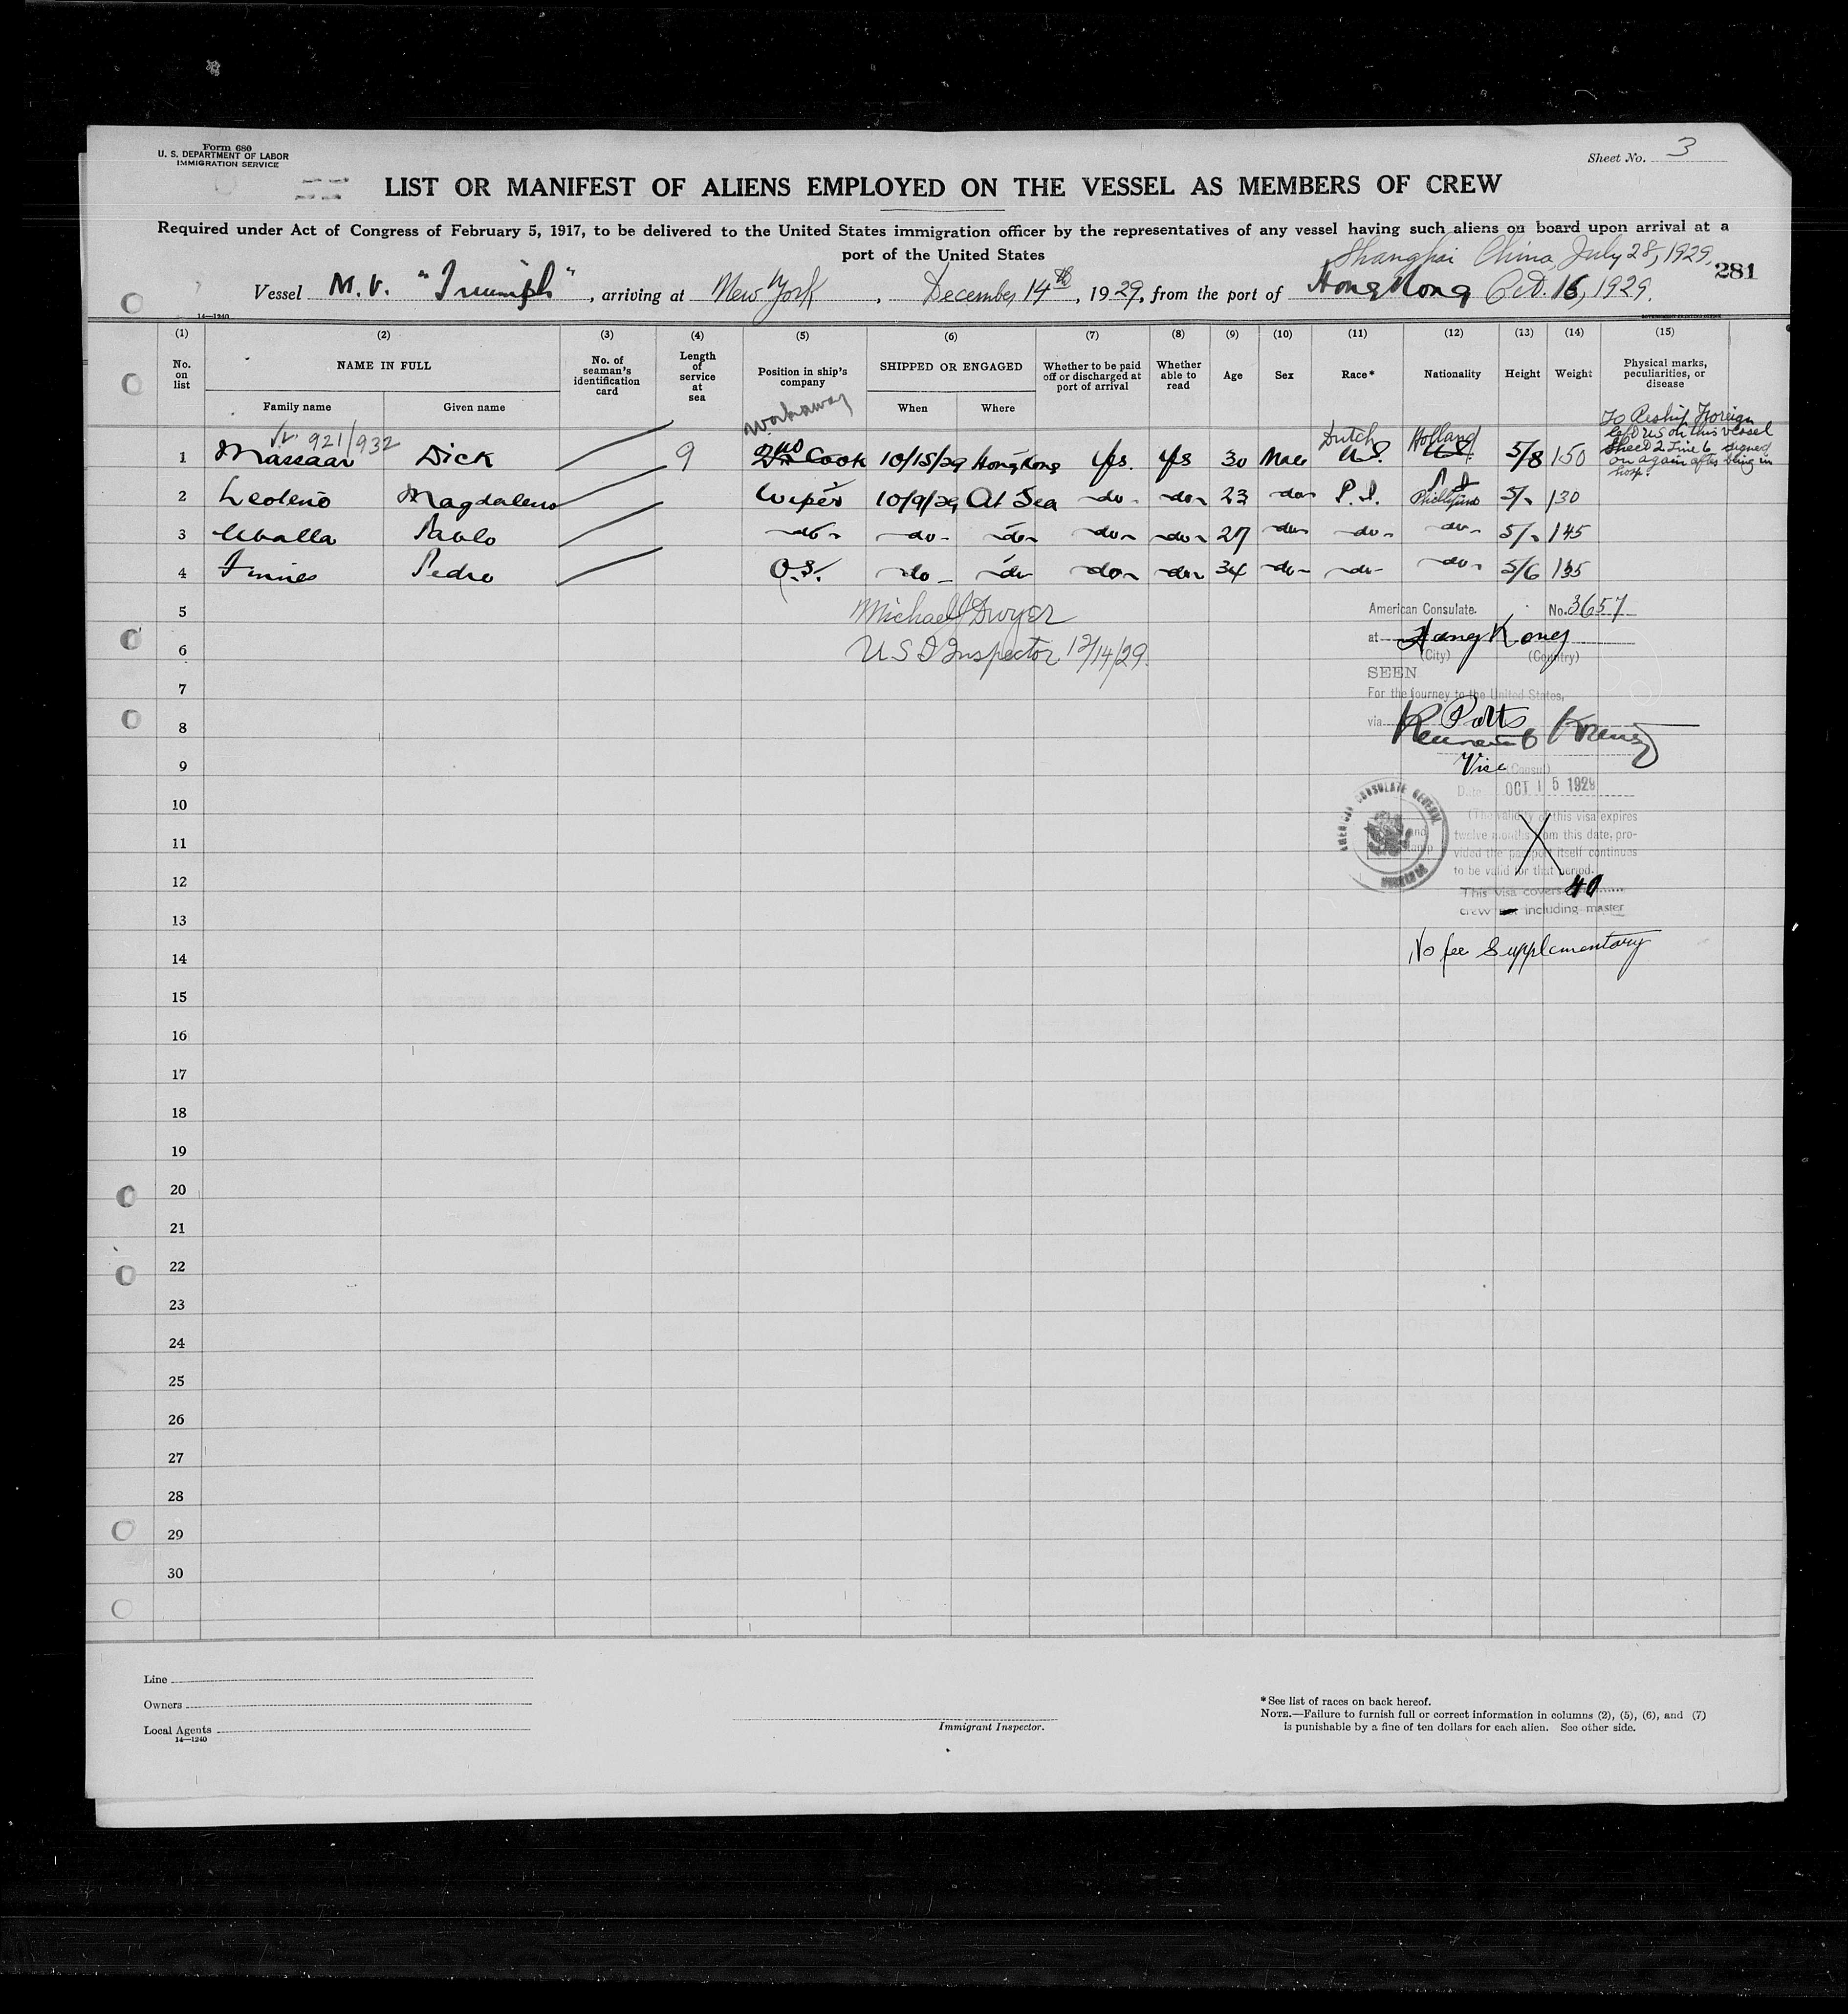 Form 680
U. S. DEPARTMENT OF LABOR
IMMIGRATION SERVICE
Sheet No. 3
LIST OR MANIFEST OF ALIENS EMPLOYED ON THE VESSEL AS MEMBERS OF CREW
Required under Act of Congress of February 5, 1917, to be delivered to the United States immigration officer by the representatives of any vessel having such aliens on board upon arrival at a
port of the United States
Shanghai China, July 28, 1929,
281
Vessel M.V. "Triumph", arriving at New York, December 14th, 1929, from the port of Hong Kong Oct. 16, 1929.
14—1240
(1) (2) (3) (4) (5) (6) (7) (8) (9) (10) (11) (12) (13) (14) (15)
No. on list
NAME IN FULL
Family name
Given name
No. of seaman's identification card
Length of service at sea
Position in ship's company
SHIPPED OR ENGAGED
When
Where
Whether to be paid off or discharged at port of arrival
Whether able to read
Age
Sex
Race*
Nationality
Height
Weight
Physical marks, peculiarities, or disease
workaway
921/932
Dutch Holland
To Reship Foreign
left us on this vessel
Sheet 2 Line 6 signed
on again after being in
hosp.
1 Massaar Dick 9 2nd Cook 10/15/29 Hong Kong yes. yes 30 Male U.S. U.S. 5/8 150
2 Magdaleno Wiper 10/9/29 At Sea -do- -do- 23 -do- P.I. 130
3 Pablo -do- -do- -do- -do- -do- 27 -do- -do- -do- 145
4 Pedro O.S. -do- -do- -do- -do- 34 -do- -do- -do- 5/6 135
5
6
7
8
9
10
11
12
13
14
15
16
17
18
19
20
21
22
23
24
25
26
27
28
29
30
Michael J Dwyer
U S I Inspector 12/14/29.
American Consulate. No. 3657
at Hong Kong
(City) (Country)
SEEN
For the journey to the United States,
via Ports
Vice (Consul)
Date OCT 15 1929
AMERICAN CONSULATE GENERAL
(The validity of this visa expires
twelve months from this date, pro-
vided the passport itself continues
to be valid for that period.
This visa covers 40
crew including master
No fee Supplementary
Line
Owners
Local Agents
14—1240
Immigrant Inspector.
*See list of races on back hereof.
NOTE.—Failure to furnish full or correct information in columns (2), (5), (6), and (7)
is punishable by a fine of ten dollars for each alien. See other side.